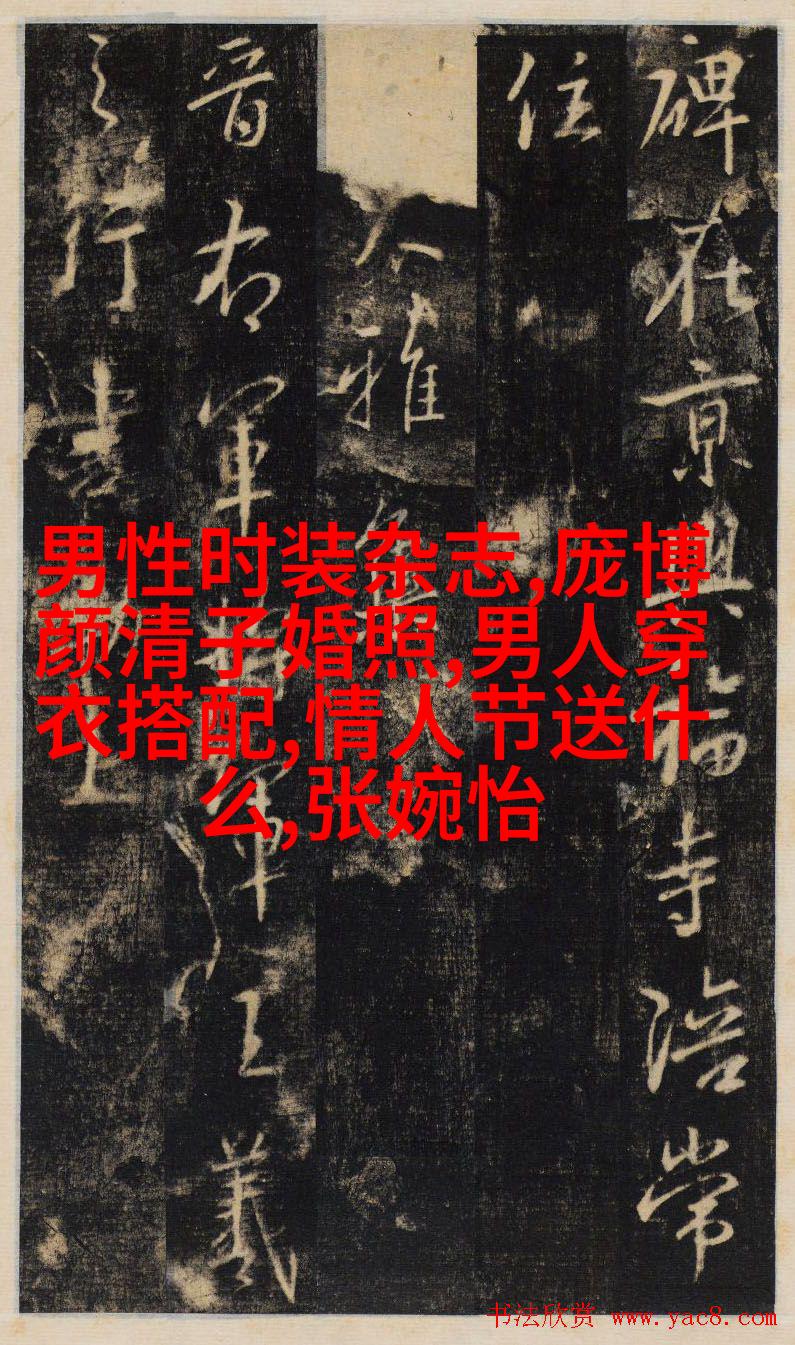 碑在京興福寺陪常
住
大雅集
晉右軍將軍王羲
之行書勒上
男性时装杂志,庞博
颜清子婚照,男人穿
衣搭配,情人节送什
么,张婉怡
书法欣赏 www.yac8.com